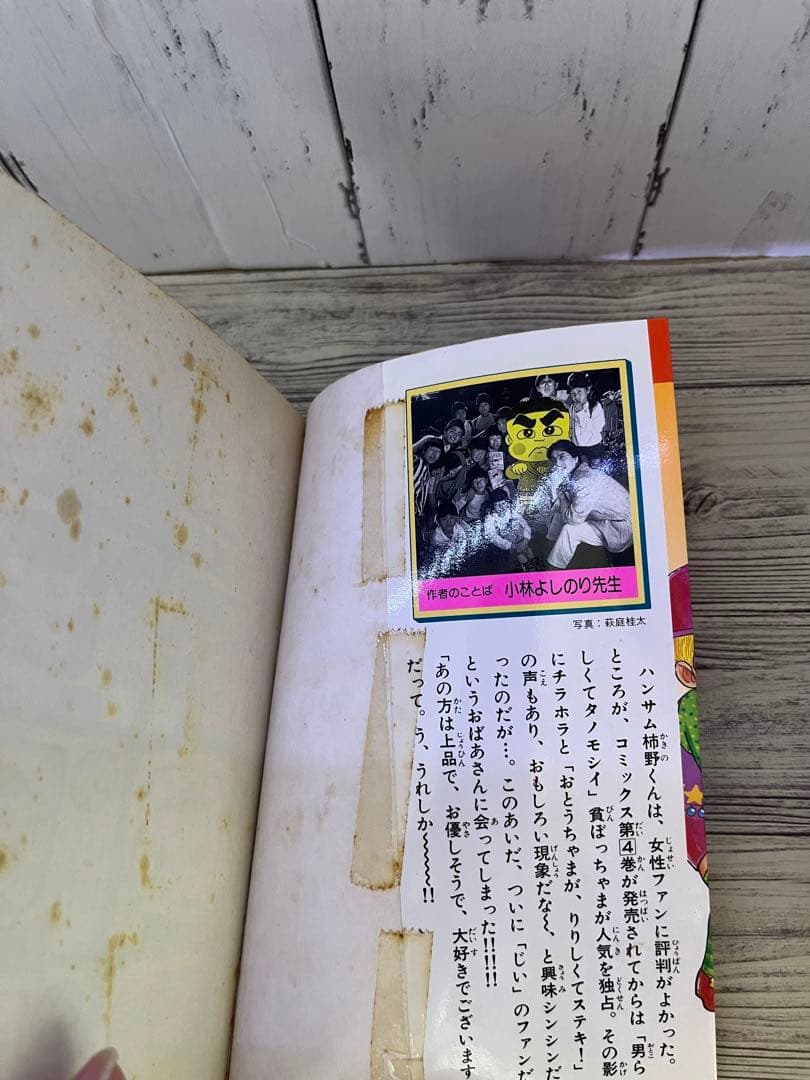 作者のことば 小林よしのり先生
写真：萩庭桂太
ハンサム柿野くんは、女性ファンに評判がよかった。
ところが、コミックス第4巻が発売されてからは「男ら
しくてタノモシイ」貧ぼっちゃまが人気を独占。その影
にチラホラと「おとうちゃまが、りりしくてステキ！」
の声もあり、おもしろい現象だな〜、と興味シンシンだ
ったのだが…。このあいだ、ついに「じい」のファンだ
というおばあさんに会ってしまった!!!!
「あの方は上品で、お優しそうで、大好きでございます
だって。う、うれしか〜〜〜!!